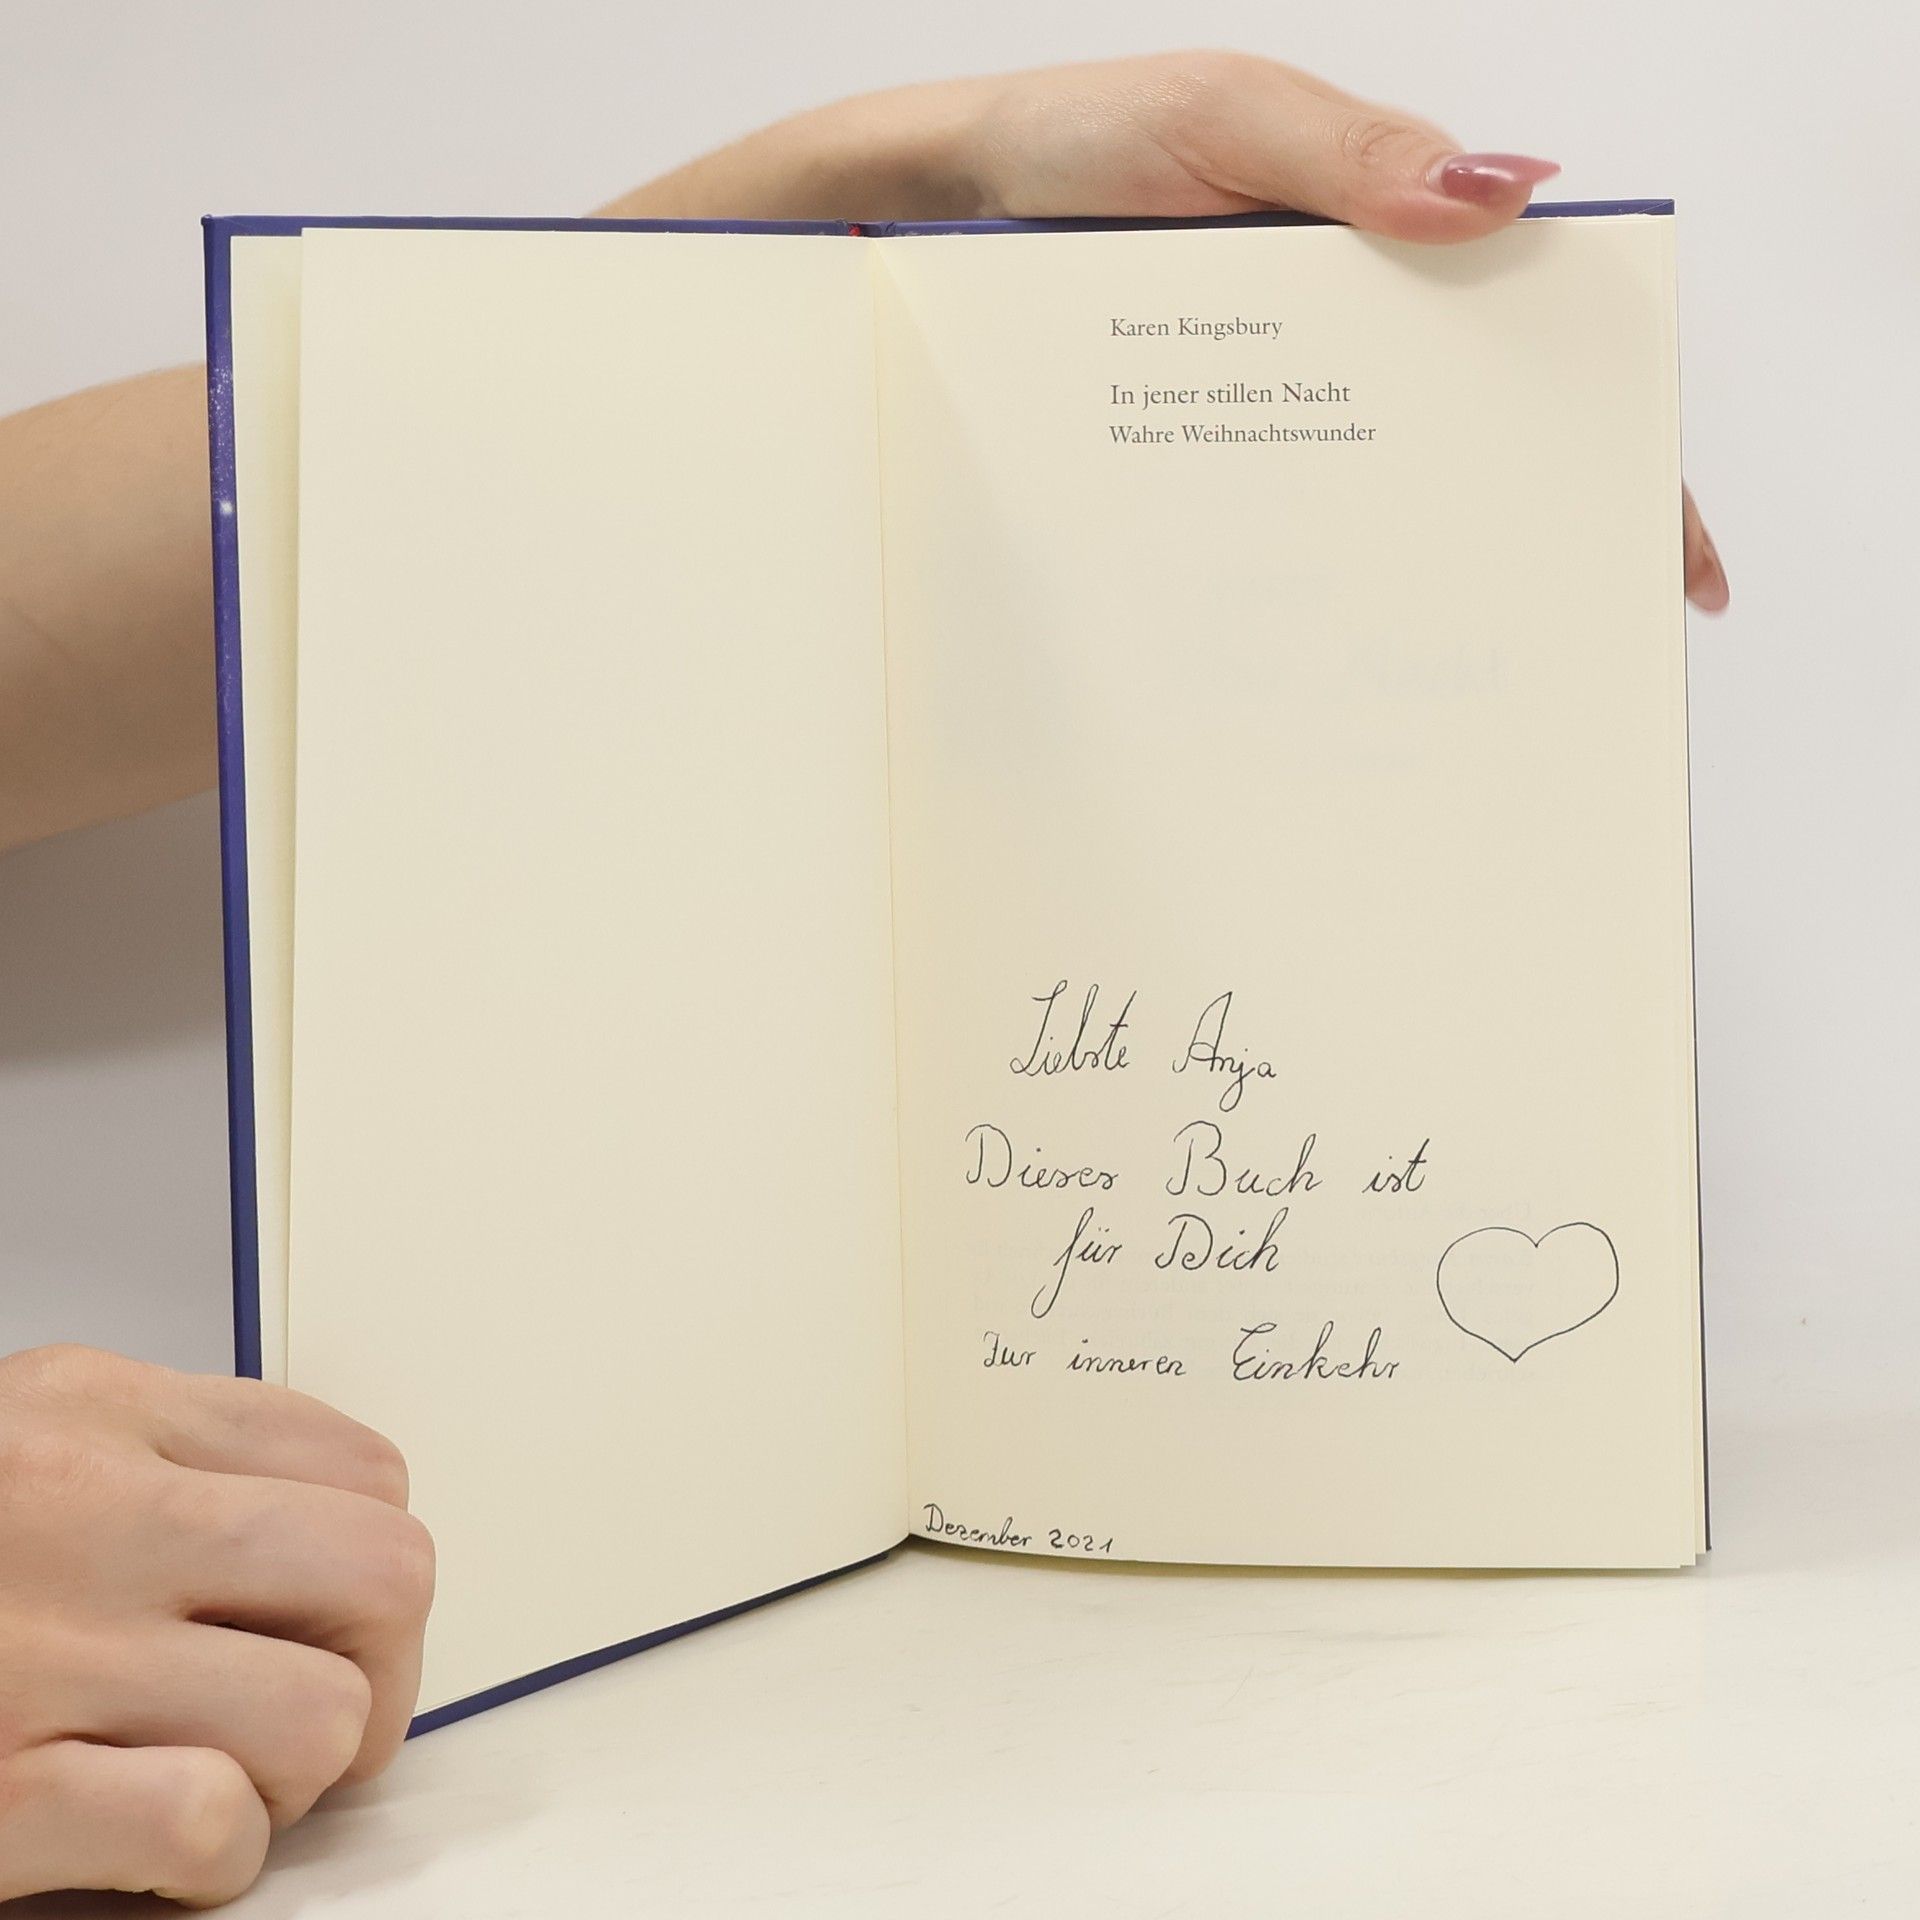 Karen Kingsbury
In jener stillen Nacht
Wahre Weihnachtswunder
Liebste Anja
Dieses Buch ist
für Dich
Zur inneren Einkehr
Dezember 2021